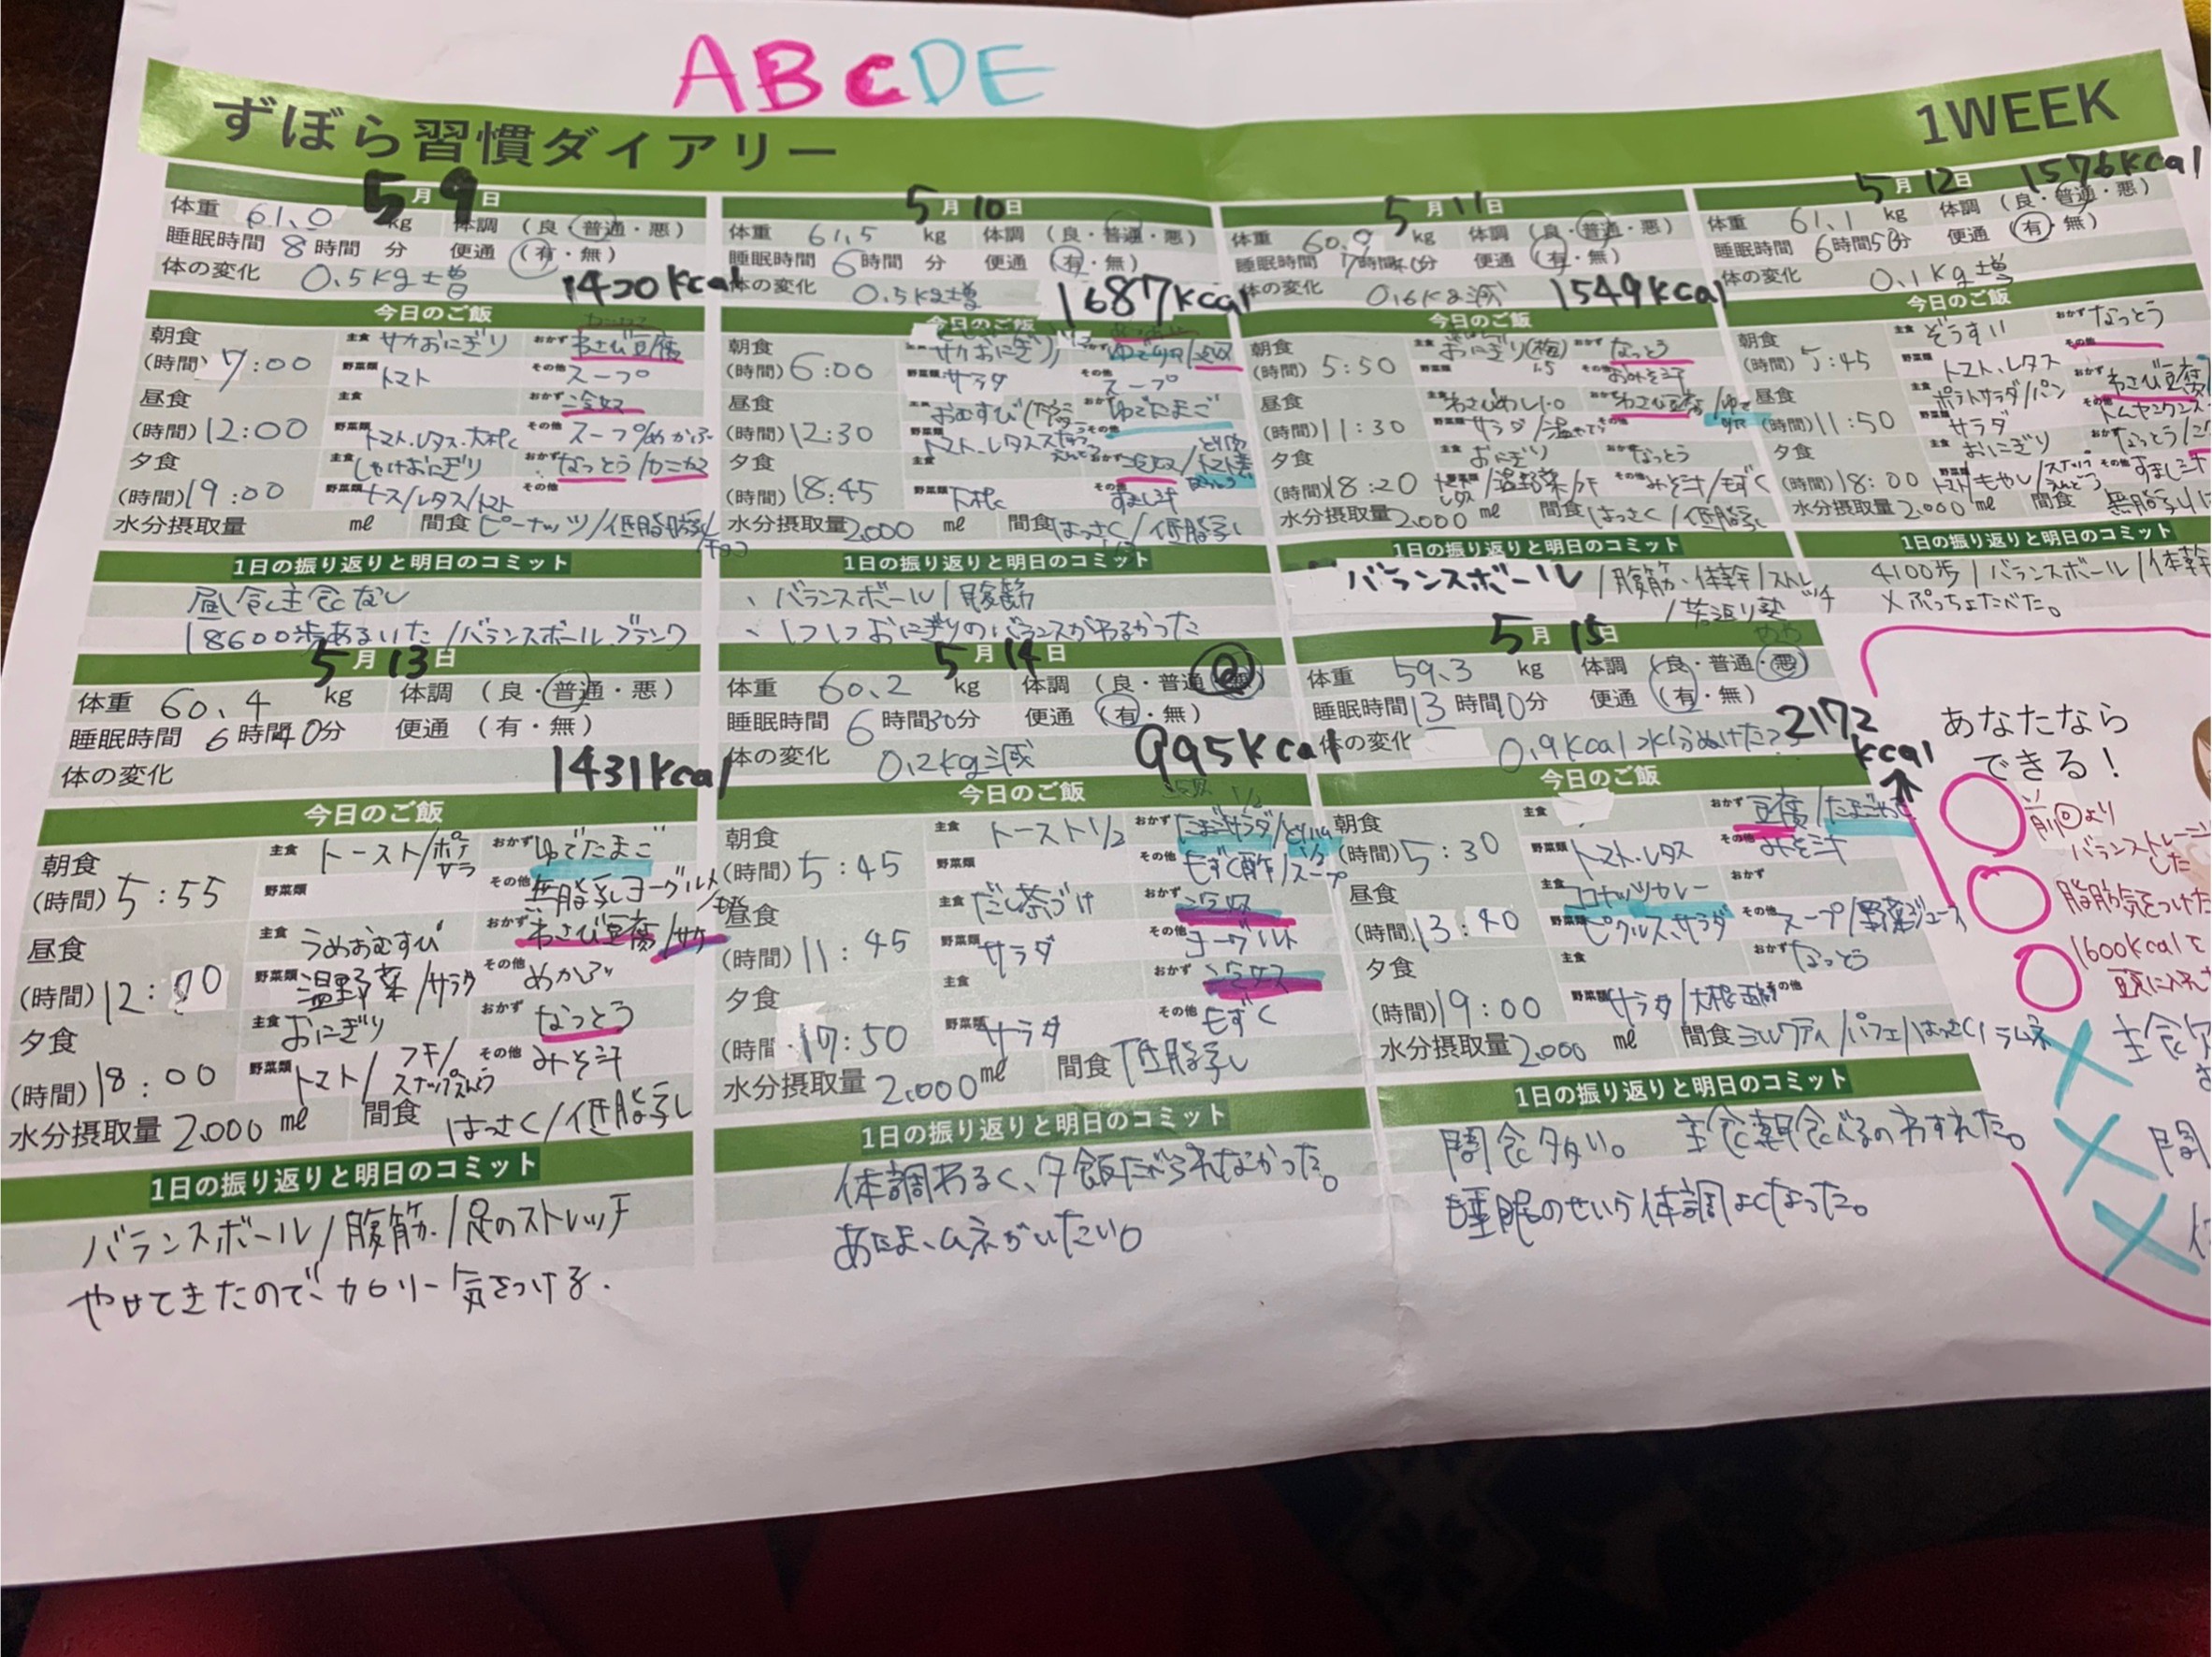 ABCDE
ずぼら習慣ダイアリー
1WEEK
5月9日
体重 61.0 kg 体調 (良・普通・悪)
睡眠時間 8時間 分 便通 (有・無)
体の変化 0.5kg増
1420kcal
今日のご飯
朝食 主食 サケおにぎり おかず わさび豆腐
(時間) 7:00 野菜類 トマト その他 スープ
昼食 主食 おかず 冷奴
(時間) 12:00 野菜類 トマト.レタス.大根 その他 スープ/めかぶ
夕食 主食 しゃけおにぎり おかず なっとう/カニカマ
(時間) 19:00 野菜類 ナス/レタス/トマト その他
水分摂取量 ml 間食 ピーナッツ/低脂肪乳/チョコ
1日の振り返りと明日のコミット
昼食主食なし
18600歩あるいた/バランスボール.プランク
5月10日
体重 61.5 kg 体調 (良・普通・悪)
睡眠時間 6時間 分 便通 (有・無)
体の変化 0.5kg増
1687kcal
今日のご飯
朝食 サケおにぎり 冷奴
(時間) 6:00 サラダ スープ
昼食 おむすび ゆでたまご
(時間) 12:30 トマト.レタス
夕食 主食 おかず 冷奴/トマト煮
(時間) 18:45 野菜類 大根 その他 すまし汁
水分摂取量 2,000 ml 間食 はっさく/低脂乳
1日の振り返りと明日のコミット
、バランスボール/腹筋
、おにぎりのバランスがわるかった
5月11日
体重 60.9 kg 体調 (良・普通・悪)
睡眠時間 7時間40分 便通 (有・無)
体の変化 0.6kg減
1549kcal
今日のご飯
朝食 主食 おにぎり(梅) おかず なっとう
(時間) 5:50 野菜類 その他 おみそ汁
昼食 わさびめし わさび豆腐/ゆで
(時間) 11:30 野菜類 サラダ/温やさい その他
夕食 主食 おにぎり おかず なっとう
(時間) 18:20 トマト レタス/温野菜 その他 みそ汁/もずく
水分摂取量 2,000 ml 間食 はっさく/低脂乳
1日の振り返りと明日のコミット
バランスボール/腹筋、体幹/ストレッチ
/若返り塾
5月12日 1576kcal
体重 61.1 kg 体調 (良・普通・悪)
睡眠時間 6時間50分 便通 (有・無)
体の変化 0.1kg増
今日のご飯
朝食 主食 ぞうすい おかず なっとう
(時間) 5:45 トマト、レタス その他
昼食 主食 ポテトサラダ/パン おかず わさび豆腐
(時間) 11:50 野菜類 サラダ その他
夕食 主食 おにぎり おかず なっとう
(時間) 18:00 野菜類 トマト/もやし/スナップえんどう その他 すまし汁
水分摂取量 2,000 ml 間食 無脂乳
1日の振り返りと明日のコミット
4100歩/バランスボール/体幹
×ぷっちょたべた。
5月13日
体重 60.4 kg 体調 (良・普通・悪)
睡眠時間 6時間40分 便通 (有・無)
体の変化
1431kcal
今日のご飯
朝食 主食 トースト/ポテサラ おかず ゆでたまご
(時間) 5:55 野菜類 その他 無脂乳ヨーグルト
昼食 主食 うめおむすび おかず わさび豆腐/サケ
(時間) 12:00 野菜類 温野菜/サラダ その他 めかぶ
夕食 主食 おにぎり おかず なっとう
(時間) 18:00 野菜類 トマト/フキ/スナップえんどう その他 みそ汁
水分摂取量 2,000 ml 間食 はっさく/低脂乳
1日の振り返りと明日のコミット
バランスボール/腹筋./足のストレッチ
やせてきたので、カロリー気をつける.
5月14日
体重 60.2 kg 体調 (良・普通・悪)
睡眠時間 6時間30分 便通 (有・無)
体の変化 0.2kg減
995kcal
今日のご飯
朝食 主食 トースト1/2 おかず たまごサラダ/とりハム
(時間) 5:45 野菜類 その他 もずく酢/スープ
昼食 主食 だし茶づけ おかず 冷奴
(時間) 11:45 野菜類 サラダ その他 ヨーグルト
夕食 主食 おかず 冷奴
(時間) 17:50 野菜類 サラダ その他 もずく
水分摂取量 2,000 ml 間食 低脂乳
1日の振り返りと明日のコミット
体調わるく、夕飯たべられなかった。
あたま、ムネがいたい。
5月15日
体重 59.3 kg 体調 (良・普通・悪)
睡眠時間 13時間0分 便通 (有・無)
体の変化 0.9kcal水分ぬけた?
2172
kcal
↑
今日のご飯
朝食 主食 おかず 豆腐/たまごやき
(時間) 5:30 野菜類 トマト.レタス その他 みそ汁
昼食 主食 ココナッツカレー おかず
(時間) 13:40 野菜類 ピクルス、サラダ その他 スープ/野菜ジュース
夕食 主食 おかず なっとう
(時間) 19:00 野菜類 サラダ/大根 その他
水分摂取量 2,000 ml 間食 ミルクティ/パフェ/はっさく/ラムネ
1日の振り返りと明日のコミット
間食多い。 主食朝食べるのわすれた。
睡眠のせいか体調よくなった。
あなたなら
できる!
前回より
バランストレーニ
した
脂肪気をつけた
1600kcalを
頭に入れ
主食
間